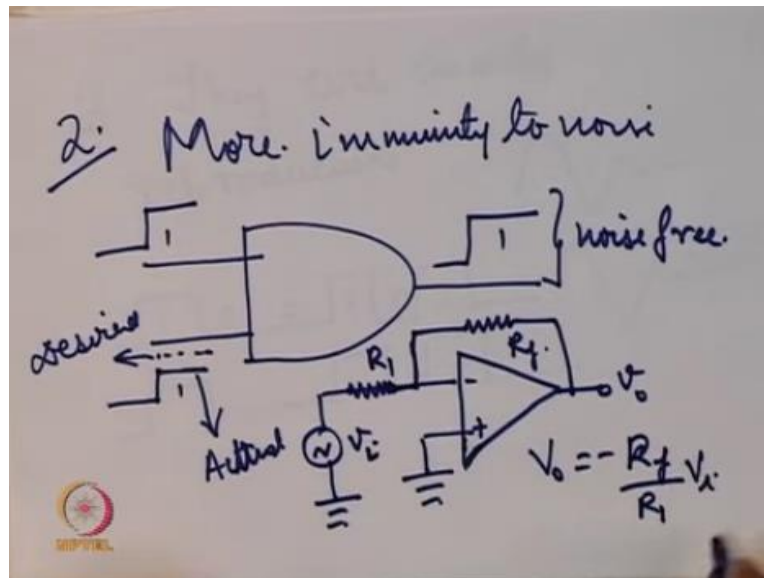 2. More. immunity to noise
1
1
noise free.
Desired
1
Actual
R1
Rf.
-
+
Vi
Vo
Vo = - Rf/R1 Vi
NPTEL